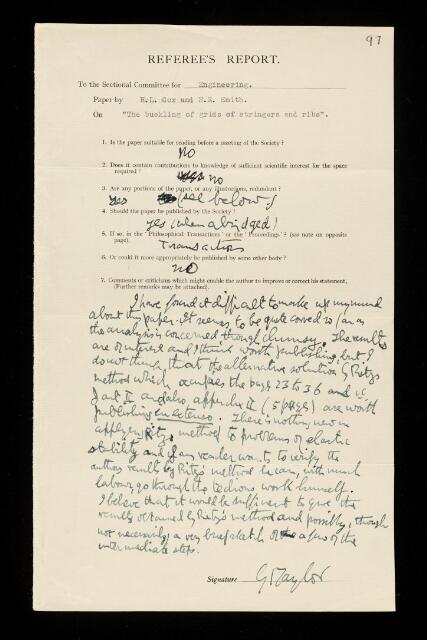 97
REFEREE'S REPORT.
To the Sectional Committee for Engineering.
Paper by H.L. Cox and H.E. Smith.
On "The buckling of grids of stringers and ribs".
1. Is the paper suitable for reading before a meeting of the Society?
No
2. Does it contain contributions to knowledge of sufficient scientific interest for the space
required?
no
3. Are any portions of the paper, or any illustrations, redundant?
yes (see below)
4. Should the paper be published by the Society?
yes (when abridged)
5. If so, in the 'Philosophical Transactions' or the 'Proceedings'? (see note on opposite
page).
Transactions
6. Or could it more appropriately be published by some other body?
no
7. Comments or criticisms which might enable the author to improve or correct his statement.
(Further remarks may be attached).
I have found it difficult to make up my mind
about this paper. It seems to be quite correct so far as
the analysis is concerned though clumsy. The results
are of interest and I think worth publishing, but I
do not think that the alternative solution by Ritz's
method which occupies the pages 23 to 36 and
part II and also appendix II (5 pages) are worth
publishing in extenso. There is nothing new in
applying Ritz's method to problems of elastic
stability and if any reader wants to verify the
authors results by Ritz's method he can, with much
labour, go through the tedious work himself.
I believe that it would be sufficient to give the
results obtained by Ritz's method and possibly, though
not necessarily, a very brief sketch of a few of the
intermediate steps.
Signature G I Taylor